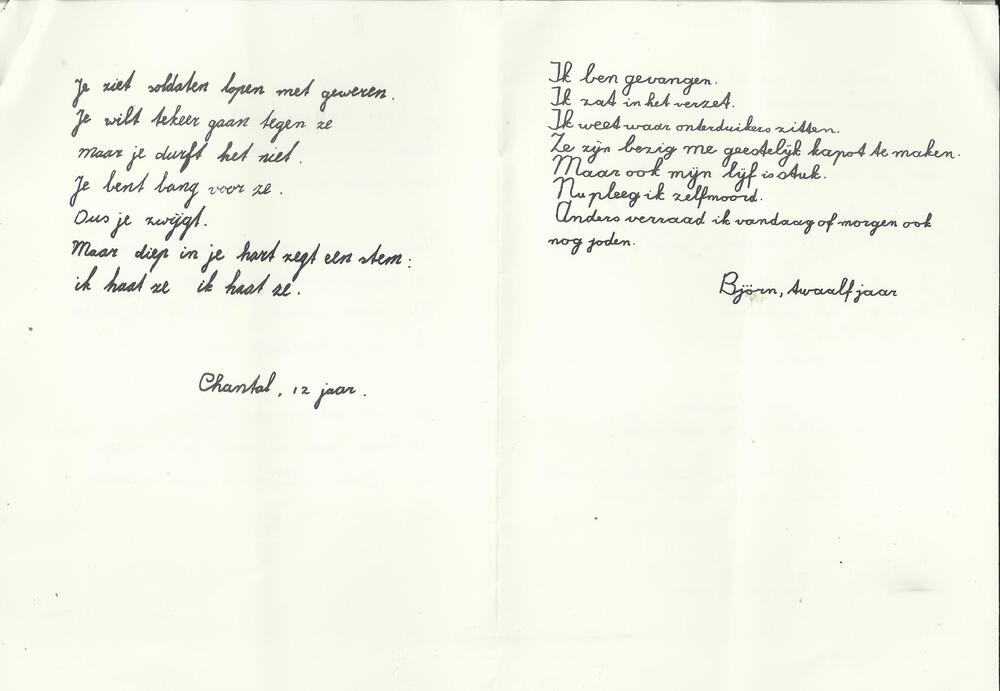 Je ziet soldaten lopen met geweren.
Je wilt tekeer gaan tegen ze
maar je durft het niet.
Je bent bang voor ze.
Dus je zwijgt.
Maar diep in je hart zegt een stem:
ik haat ze ik haat ze.
Chantal, 12 jaar.
Ik ben gevangen.
Ik zat in het verzet.
Ik weet waar onderduikers zitten.
Ze zijn bezig me geestelijk kapot te maken.
Maar ook mijn lijf is stuk.
Nu pleeg ik zelfmoord.
Anders verraad ik vandaag of morgen ook
nog joden.
Björn, twaalf jaar